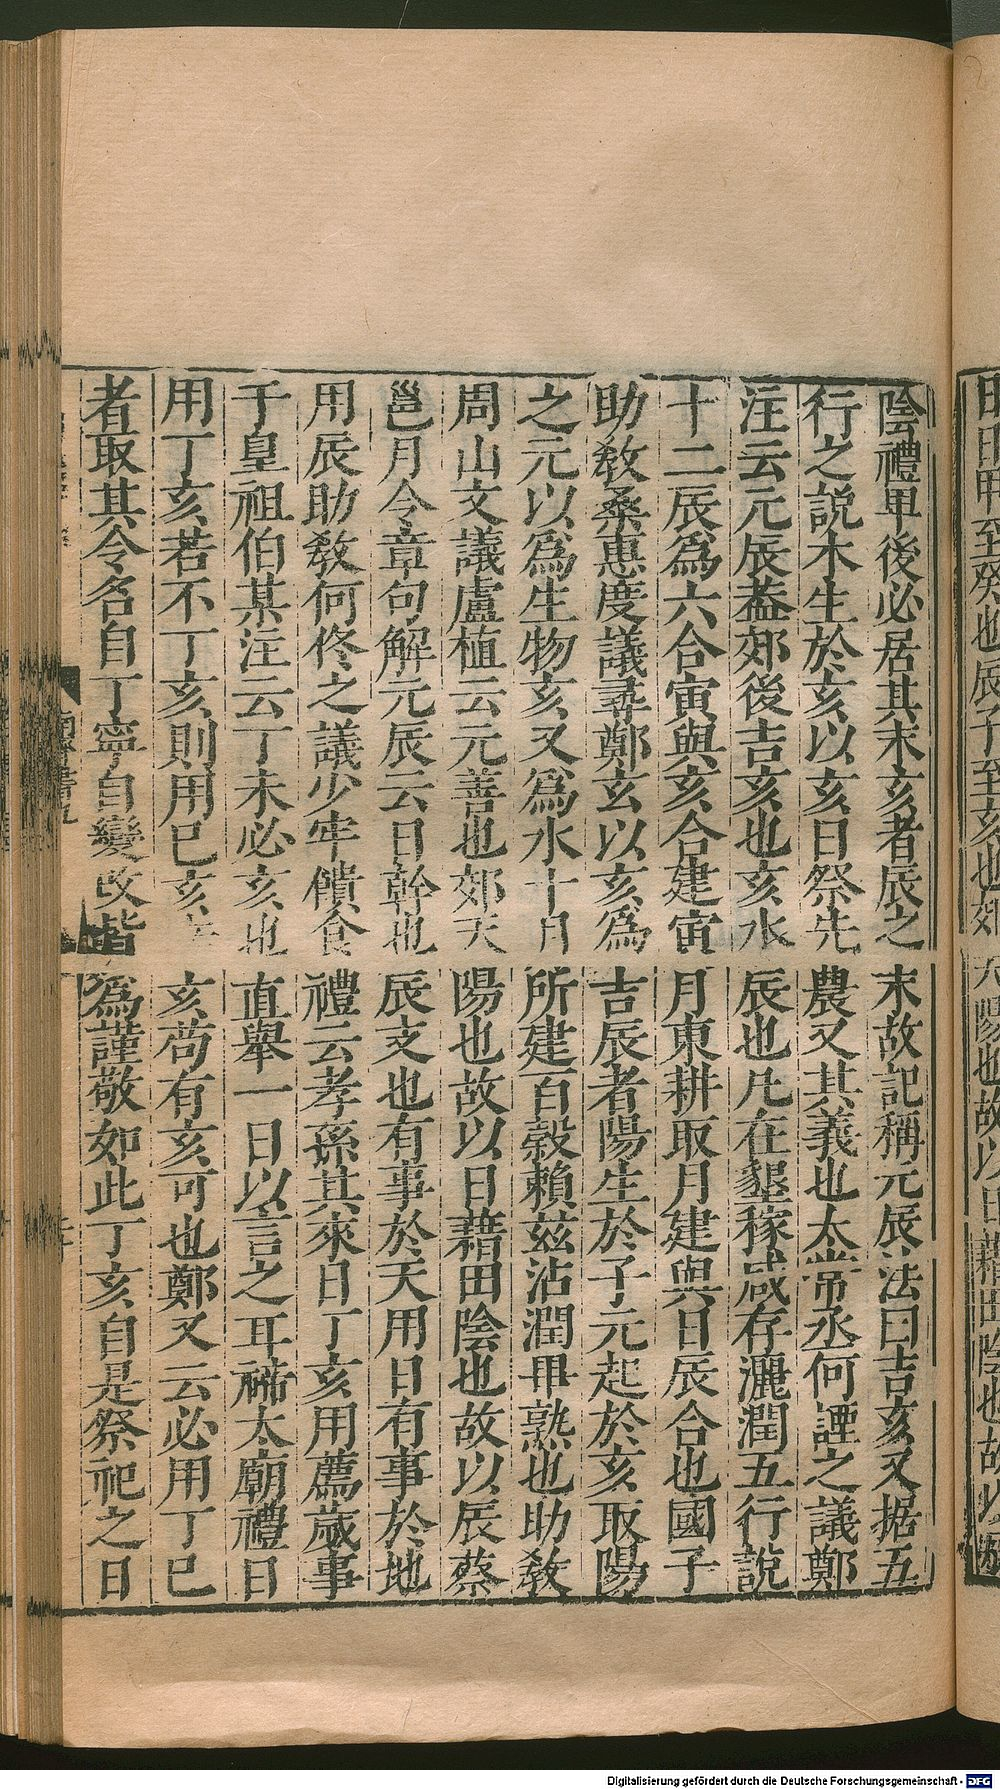 陰禮卑後必居其末亥者辰之末故記稱元辰法曰吉亥又据五
行之說木生於亥以亥日祭先農又其義也太常丞何諲之議鄭
注云元辰蓋郊後吉亥也亥水辰也凡在墾稼咸存灑潤五行說
十二辰爲六合寅與亥合建寅月東耕取月建與日辰合也國子
助敎桑惠度議尋鄭玄以亥爲吉辰者陽生於子元起於亥取陽
之元以爲生物亥又爲水十月所建百穀賴兹沾潤畢熟也助敎
周山文議盧植云元善也郊天陽也故以日藉田陰也故以辰蔡
邕月令章句解元辰云日幹也辰支也有事於天用日有事於地
用辰助敎何佟之議少牢饋食禮云孝孫其來日丁亥用薦歲事
于皇祖伯某注云丁未必亥也直舉一日以言之耳禘太廟禮日
用丁亥若不丁亥則用巳亥辛亥苟有亥可也鄭又云必用丁巳
者取其令名自丁寧自變改皆爲謹敬如此丁亥自是祭祀之日
南齊書九
日日甲至癸也辰子至亥也郊天陽也故以日藉田陰也故以辰
Digitalisierung gefördert durch die Deutsche Forschungsgemeinschaft - DFG